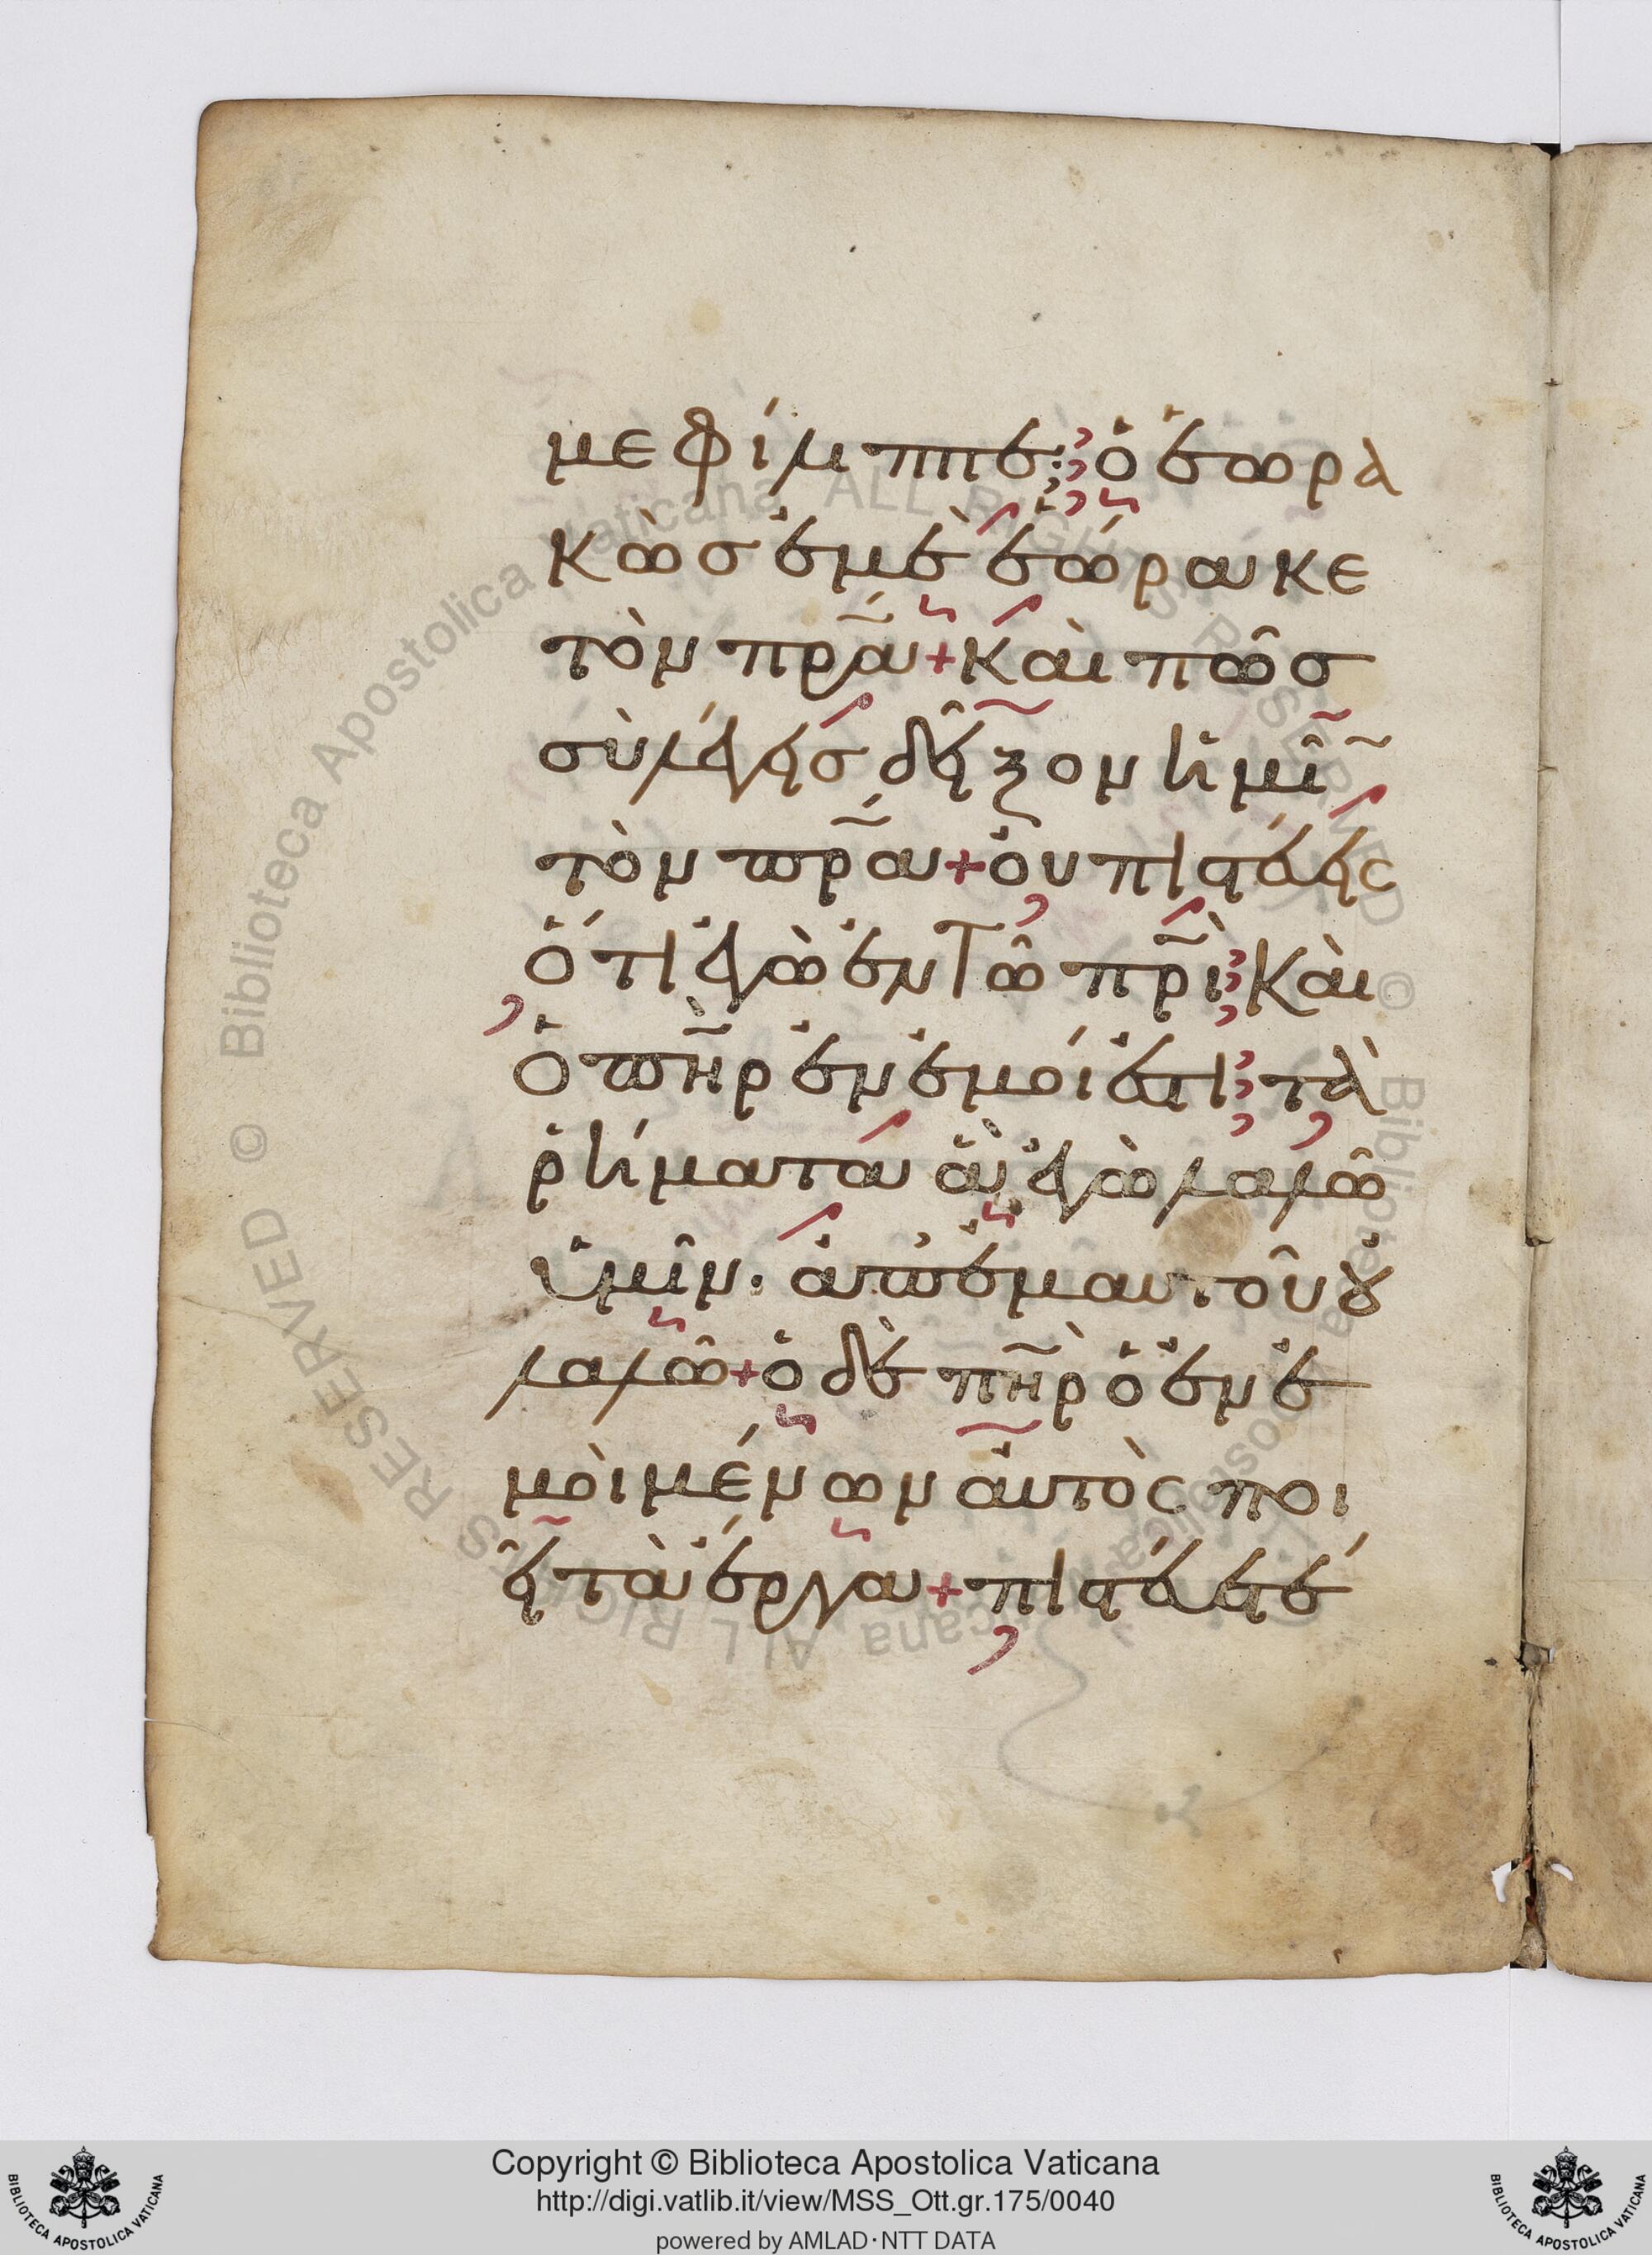 με φίλιππε· ὁ ἑωρα
κὼσ ἐμὲ ἑώρακε
τὸν πρ̅α + καὶ πῶσ
σὺ λέγεισ δεῖξον ἡμῖ̅
τὸν πρ̅α + οὐ πιστεύεις
ὅτι ἐγὼ ἐν τῶ πρ̅ι· καὶ
ὁ πη̅ρ ἐν ἐμοί ἐστι· τὰ
ῥήματα ἃ ἐγὼ λαλῶ
ὑμῖν· ἀπ' ἐμαυτοῦ οὐ
λαλῶ + ὁ δὲ πη̅ρ ὁ ἐν ἐ
μὸι μένων ἀυτὸς ποι
εῖ τὰ ἔργα + πιστεύετέ
© Biblioteca Apostolica Vaticana ALL RIGHTS RESERVED © Biblioteca Apostolica Vaticana ALL RIGHTS RESERVED
Copyright © Biblioteca Apostolica Vaticana
http://digi.vatlib.it/view/MSS_Ott.gr.175/0040
powered by AMLAD·NTT DATA
BIBLIOTECA APOSTOLICA VATICANA
BIBLIOTECA APOSTOLICA VATICANA